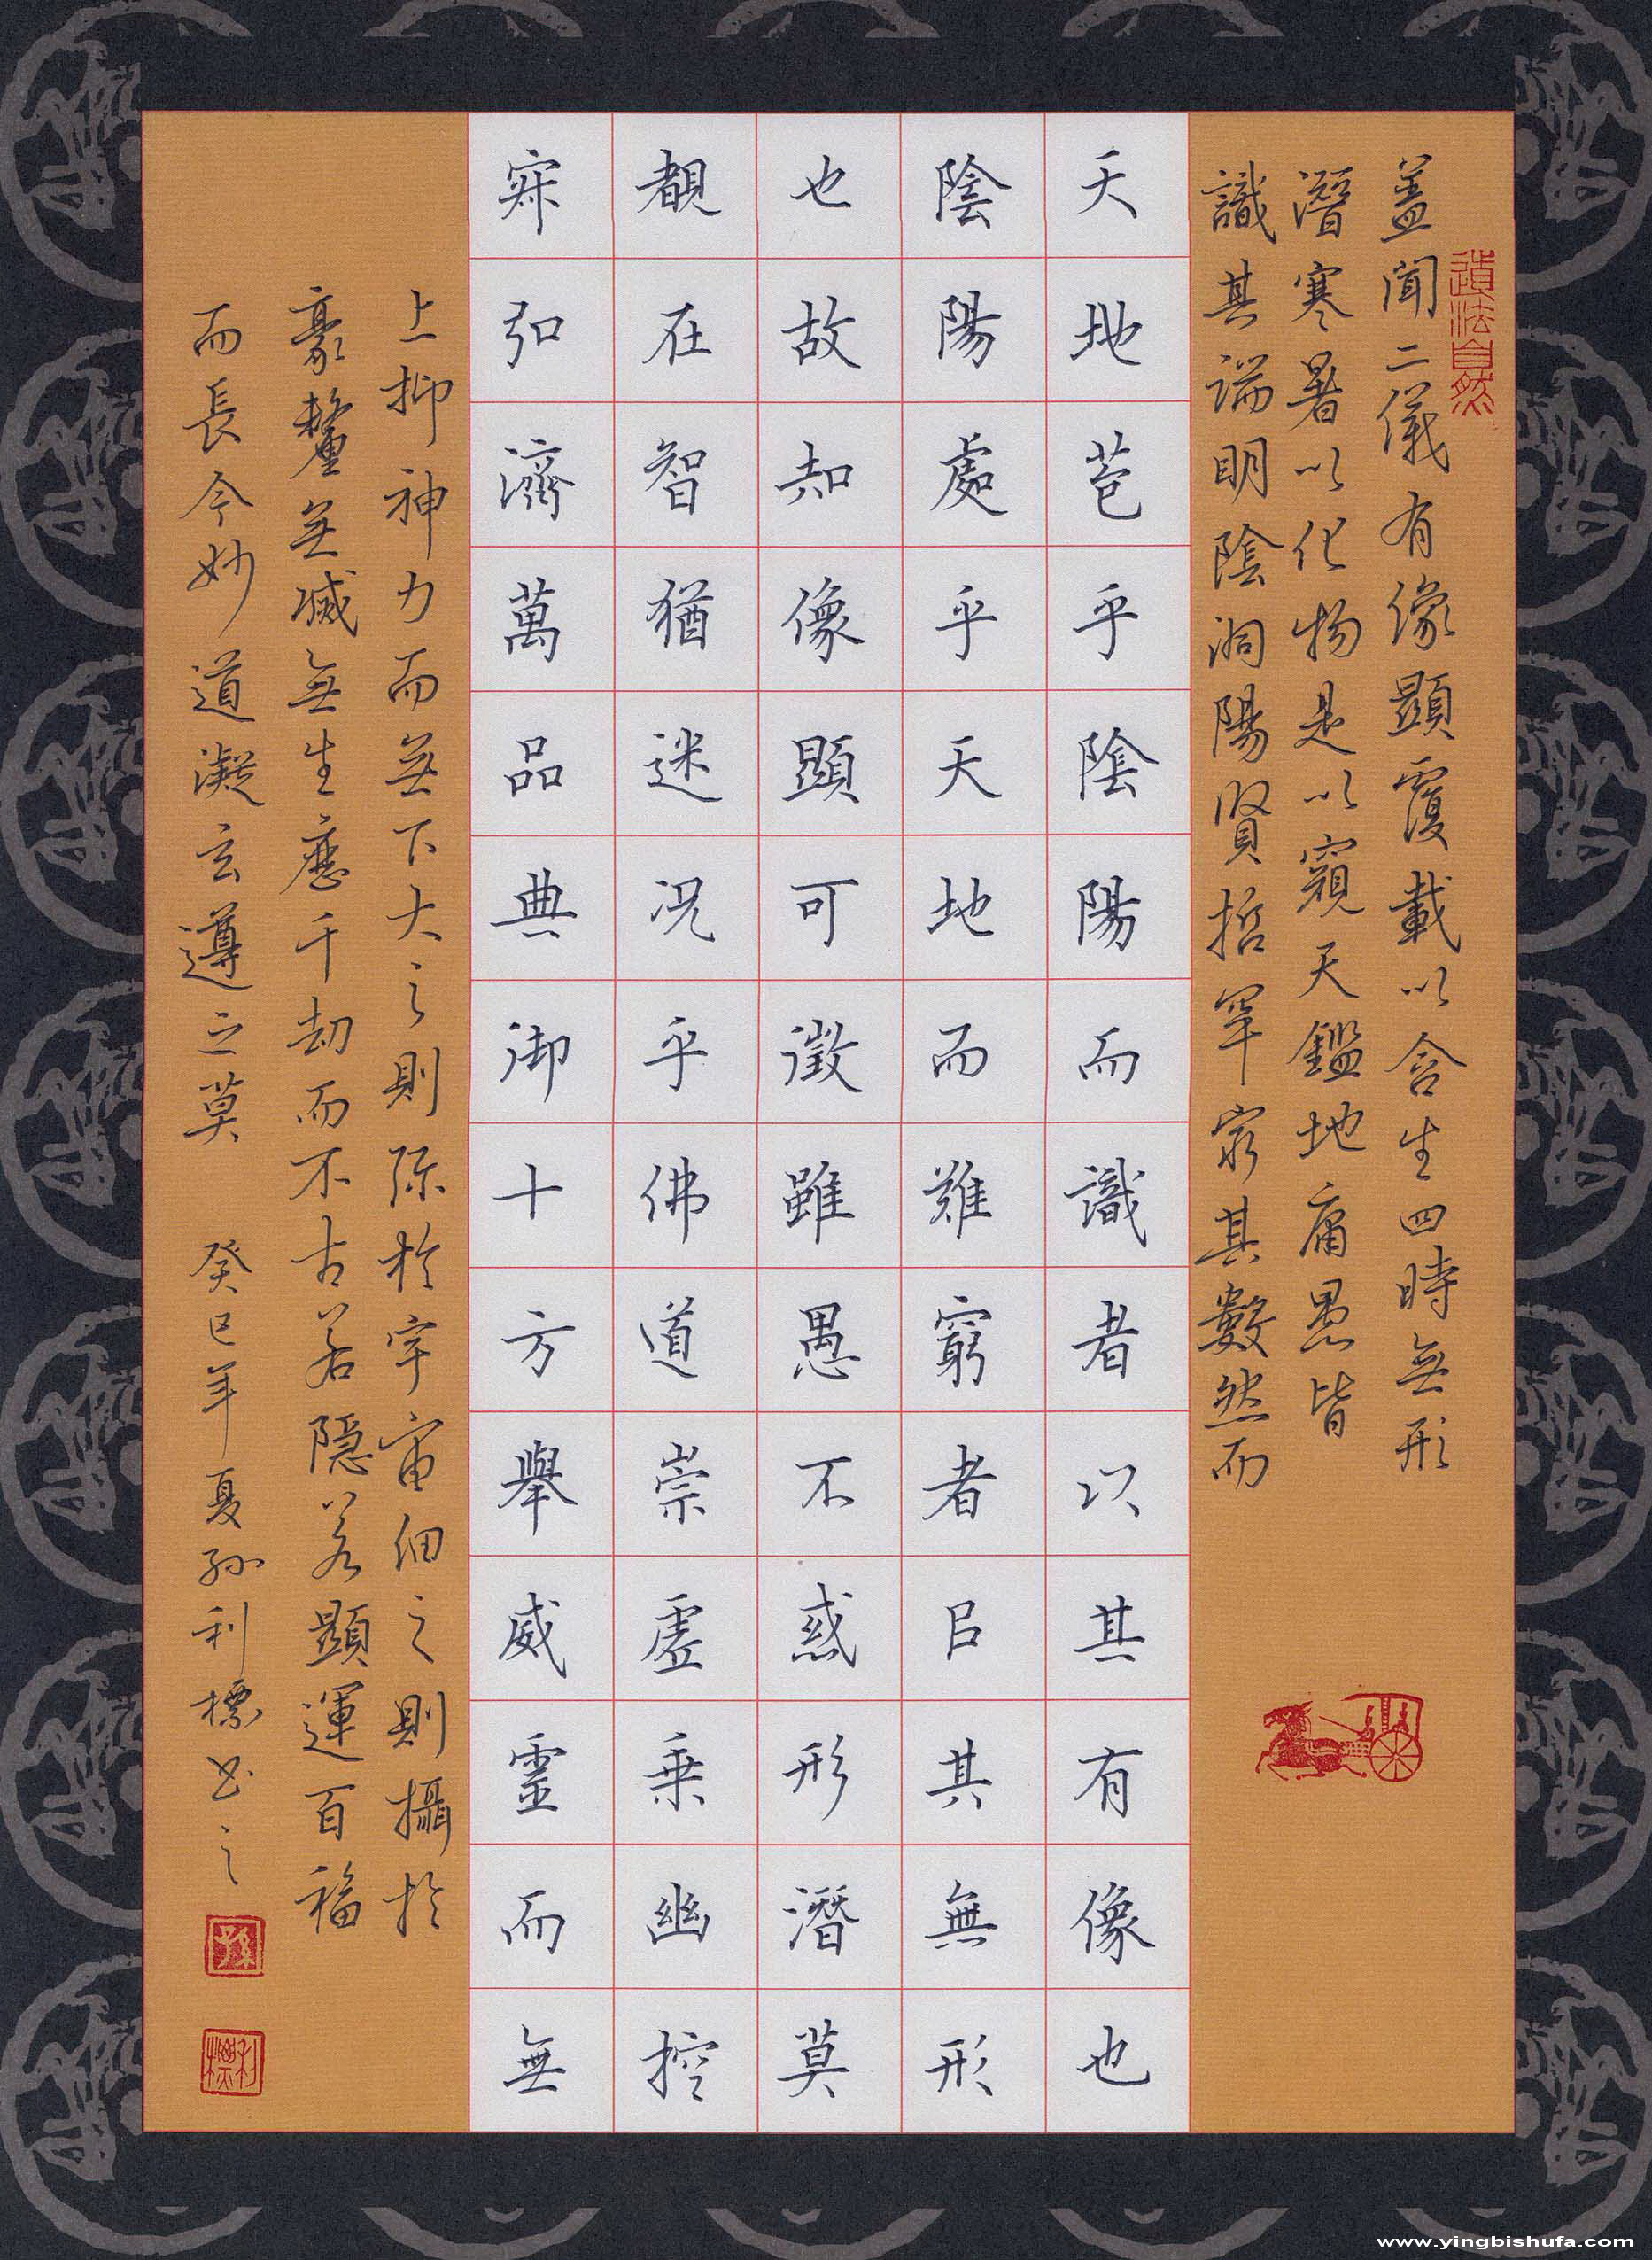 道法自然
盖聞二儀有像顯覆載以含生四時無形
潛寒暑以化物是以窺天鑑地庸愚皆
識其端明陰洞陽賢哲罕窮其數然而
天地苞乎陰陽而識者以其有像也
陰陽處乎天地而難窮者㠯其無形
也故知像顯可徵雖愚不惑形潛莫
覩在智猶迷况乎佛道崇虛乗幽控
寂弘濟萬品典御十方舉威靈而無
上抑神力而無下大之則弥於宇宙細之則攝於
豪釐無滅無生應千劫而不古若隱若顯運百福
而長今妙道凝玄遵之莫 癸巳年夏孫利標书之
孫
利標
www.yingbishufa.com